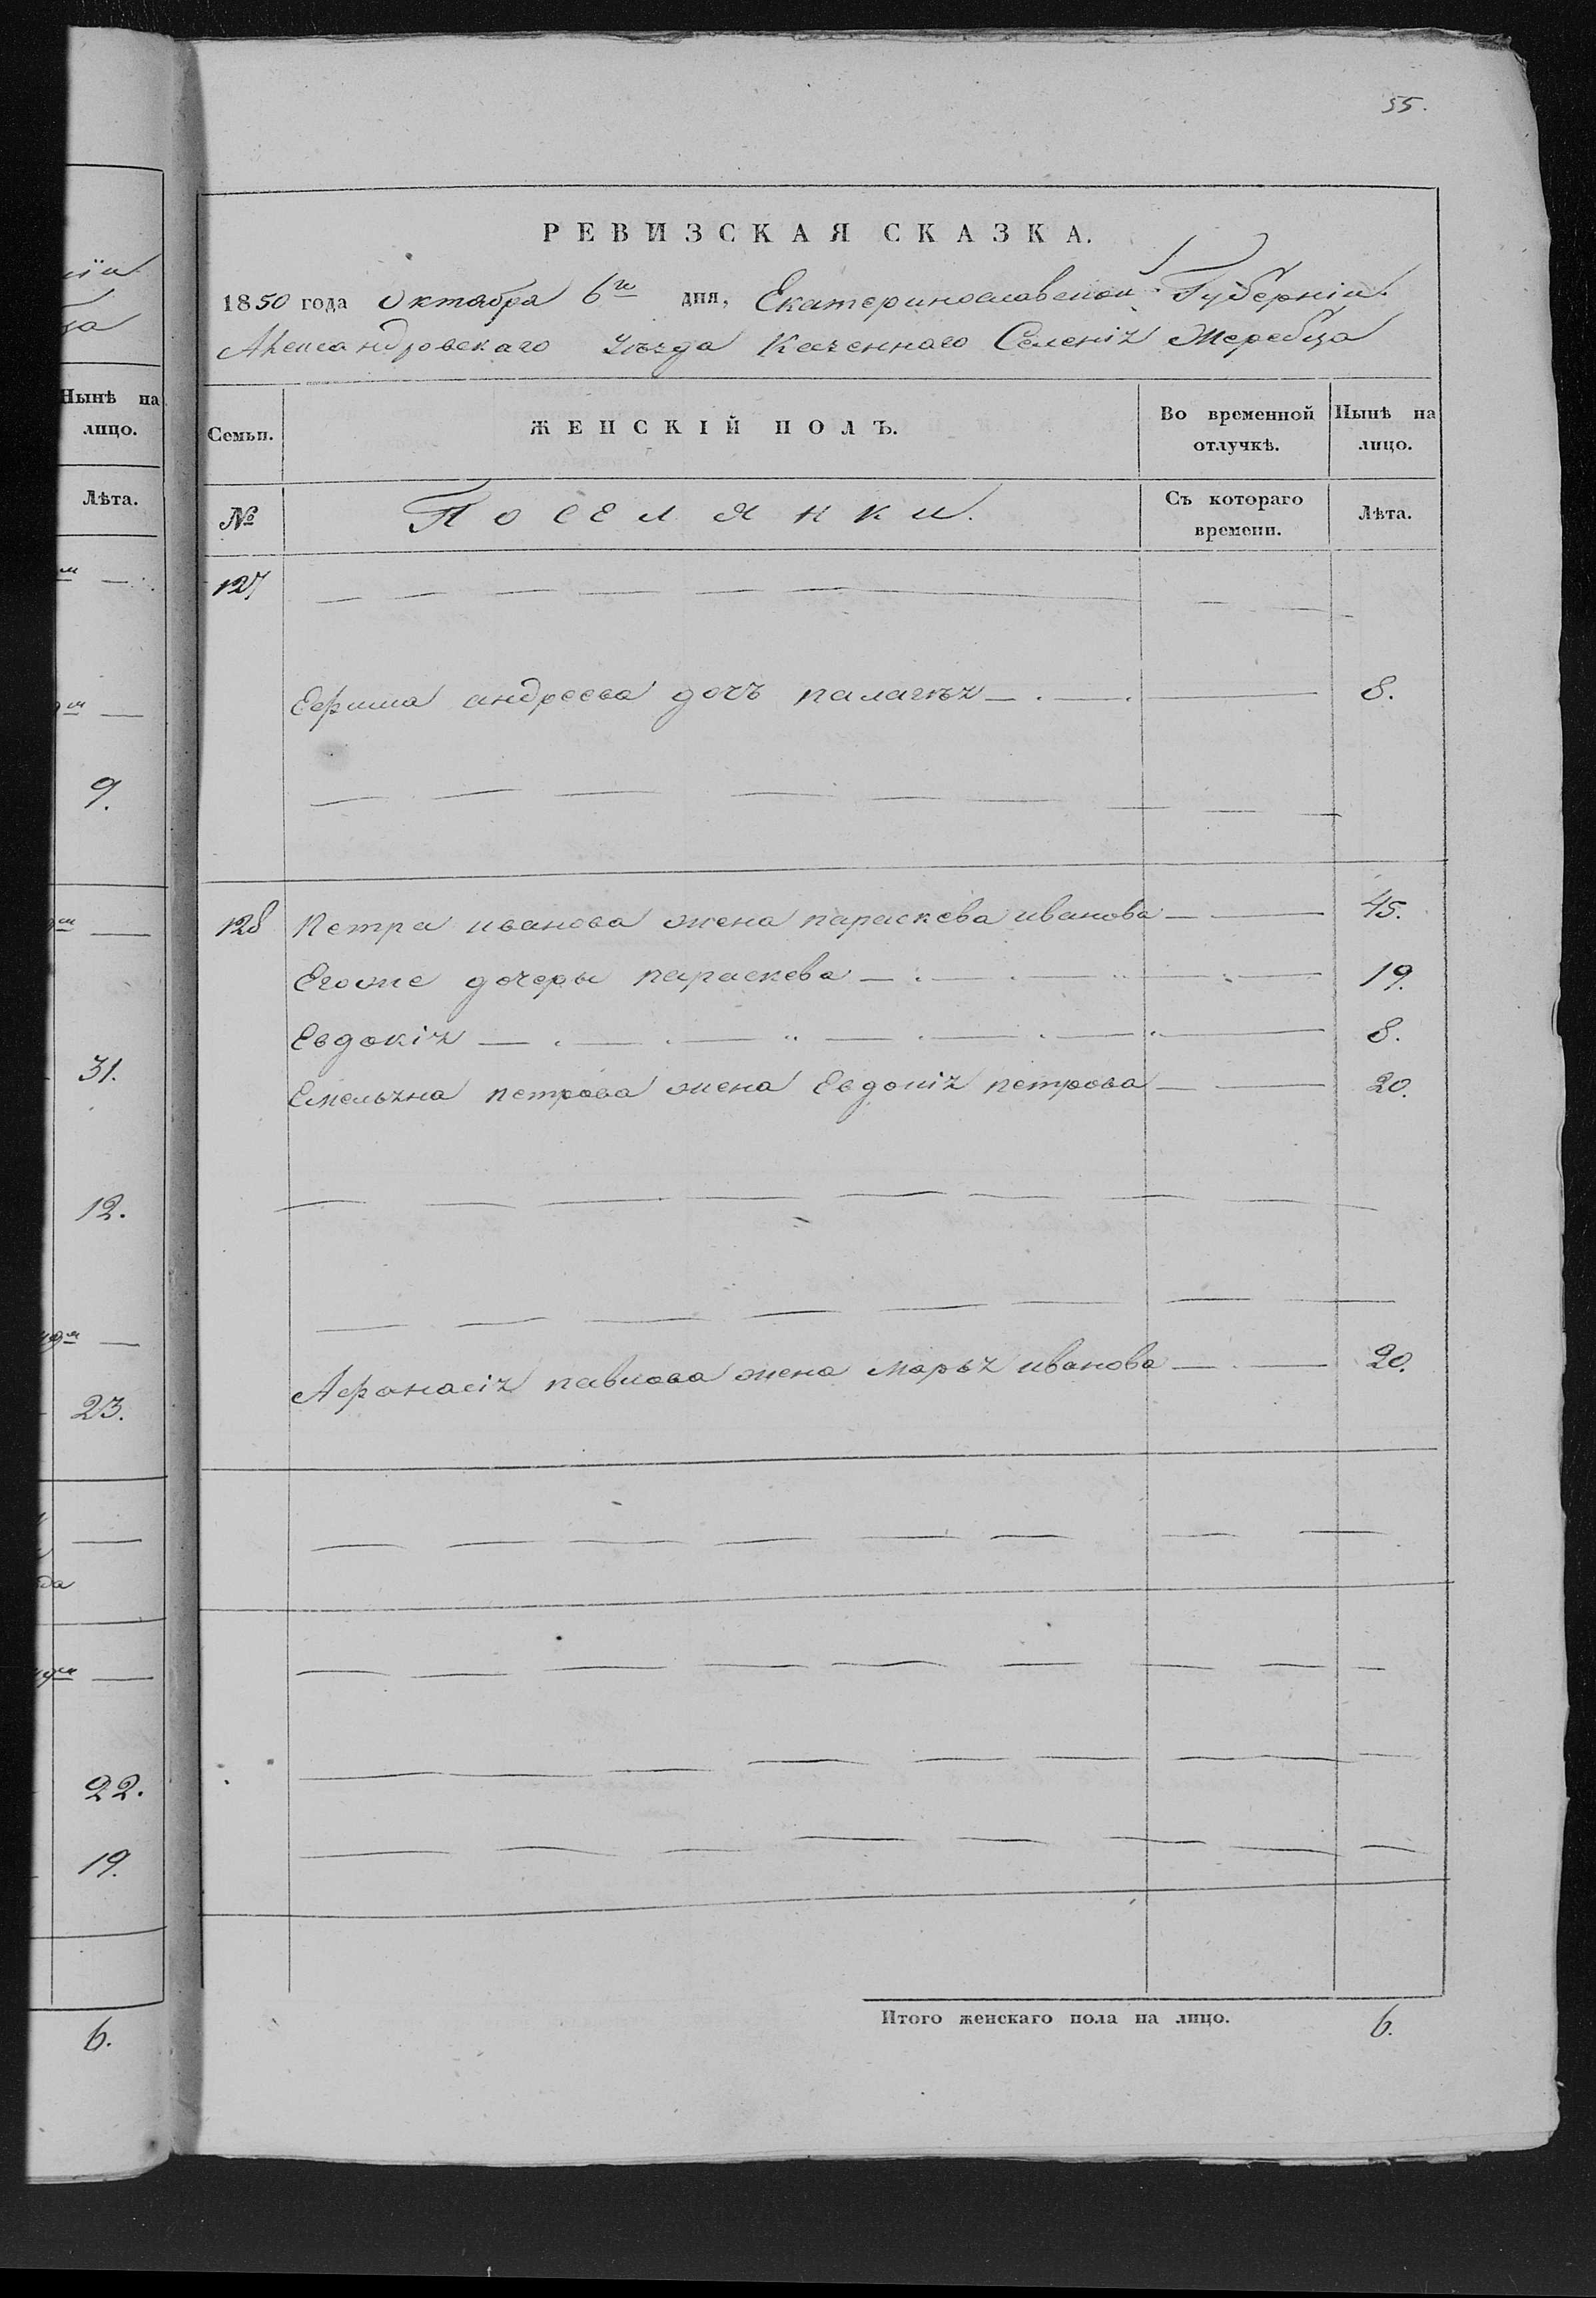 55.
РЕВИЗСКАЯ СКАЗКА.
1850 года Октября 6го дня, Екатеринославской Губерніи
Александровскаго уѣзда Казеннаго Селенія Жеребца
Семьи. ЖЕНСКІЙ ПОЛЪ. Во временной отлучкѣ. Нынѣ на лицо.
№ Поселянки. Съ котораго времени. Лѣта.
127
Ефима андреева дочь палагѣя 8.
128 Петра иванова жена параскева иванова 45.
Егоже дочеры параскева 19.
Евдокія 8.
Емельяна петрова жена Евдокія петрова 20.
Афанасія павлова жена марья иванова 20.
Итого женскаго пола на лицо. 6.
Нынѣ на
лицо.
Лѣта.
9.
31.
12.
23.
22.
19.
6.